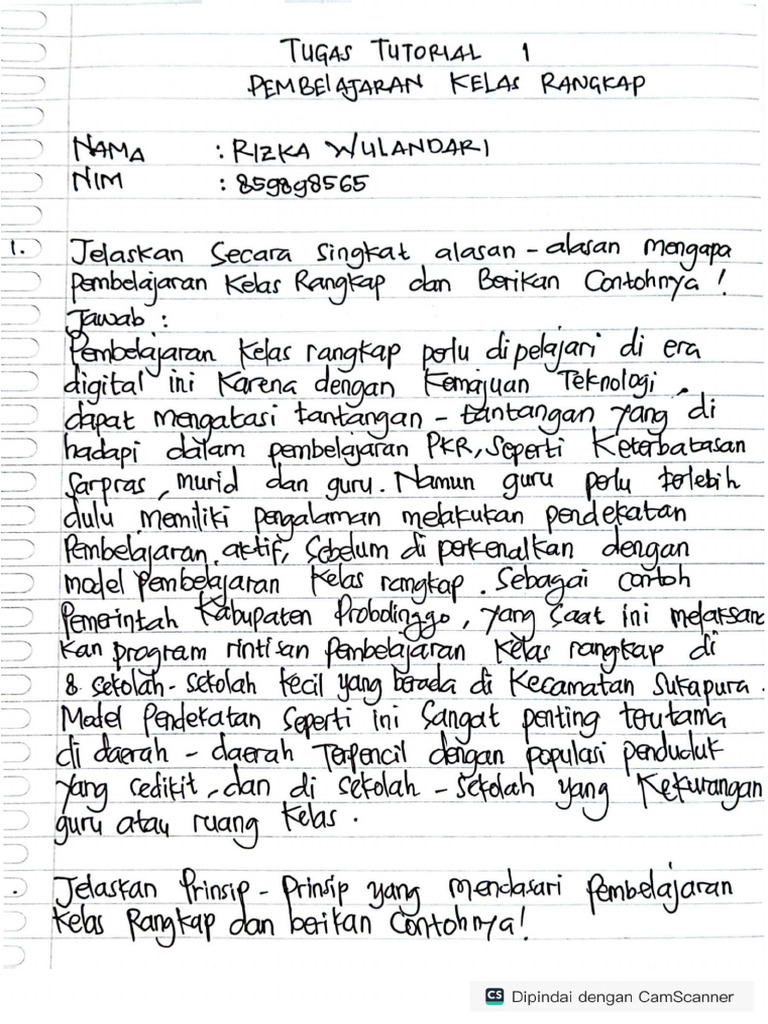 TUGAS TUTORIAL 1
PEMBELAJARAN KELAS RANGKAP
NAMA : RIZKA WULANDARI
NIM : 859898565
1. Jelaskan Secara Singkat alasan - alasan mengapa
Pembelajaran Kelas Rangkap dan Berikan Contohnya !
Jawab :
Pembelajaran Kelas rangkap perlu dipelajari di era
digital ini Karena dengan Kemajuan Teknologi,
dapat mengatasi tantangan - tantangan yang di
hadapi dalam pembelajaran PKR, Seperti Keterbatasan
Sarpras, murid dan guru. Namun guru perlu terlebih
dulu memiliki pengalaman melakukan pendekatan
Pembelajaran aktif, Sebelum di perkenalkan dengan
model Pembelajaran Kelas rangkap. Sebagai contoh
Pemerintah Kabupaten Probolinggo, yang saat ini melaksana
kan program rintisan pembelajaran Kelas rangkap di
8 sekolah - sekolah kecil yang berada di Kecamatan Sukapura.
Model Pendekatan Seperti ini Sangat penting terutama
di daerah - daerah Terpencil dengan populasi penduduk
yang cedikit, dan di sekolah - sekolah yang Kekurangan
guru atau ruang Kelas.
. Jelaskan Prinsip - Prinsip yang mendasari Pembelajaran
Kelas Rangkap dan berikan Contohnya!
CS Dipindai dengan CamScanner